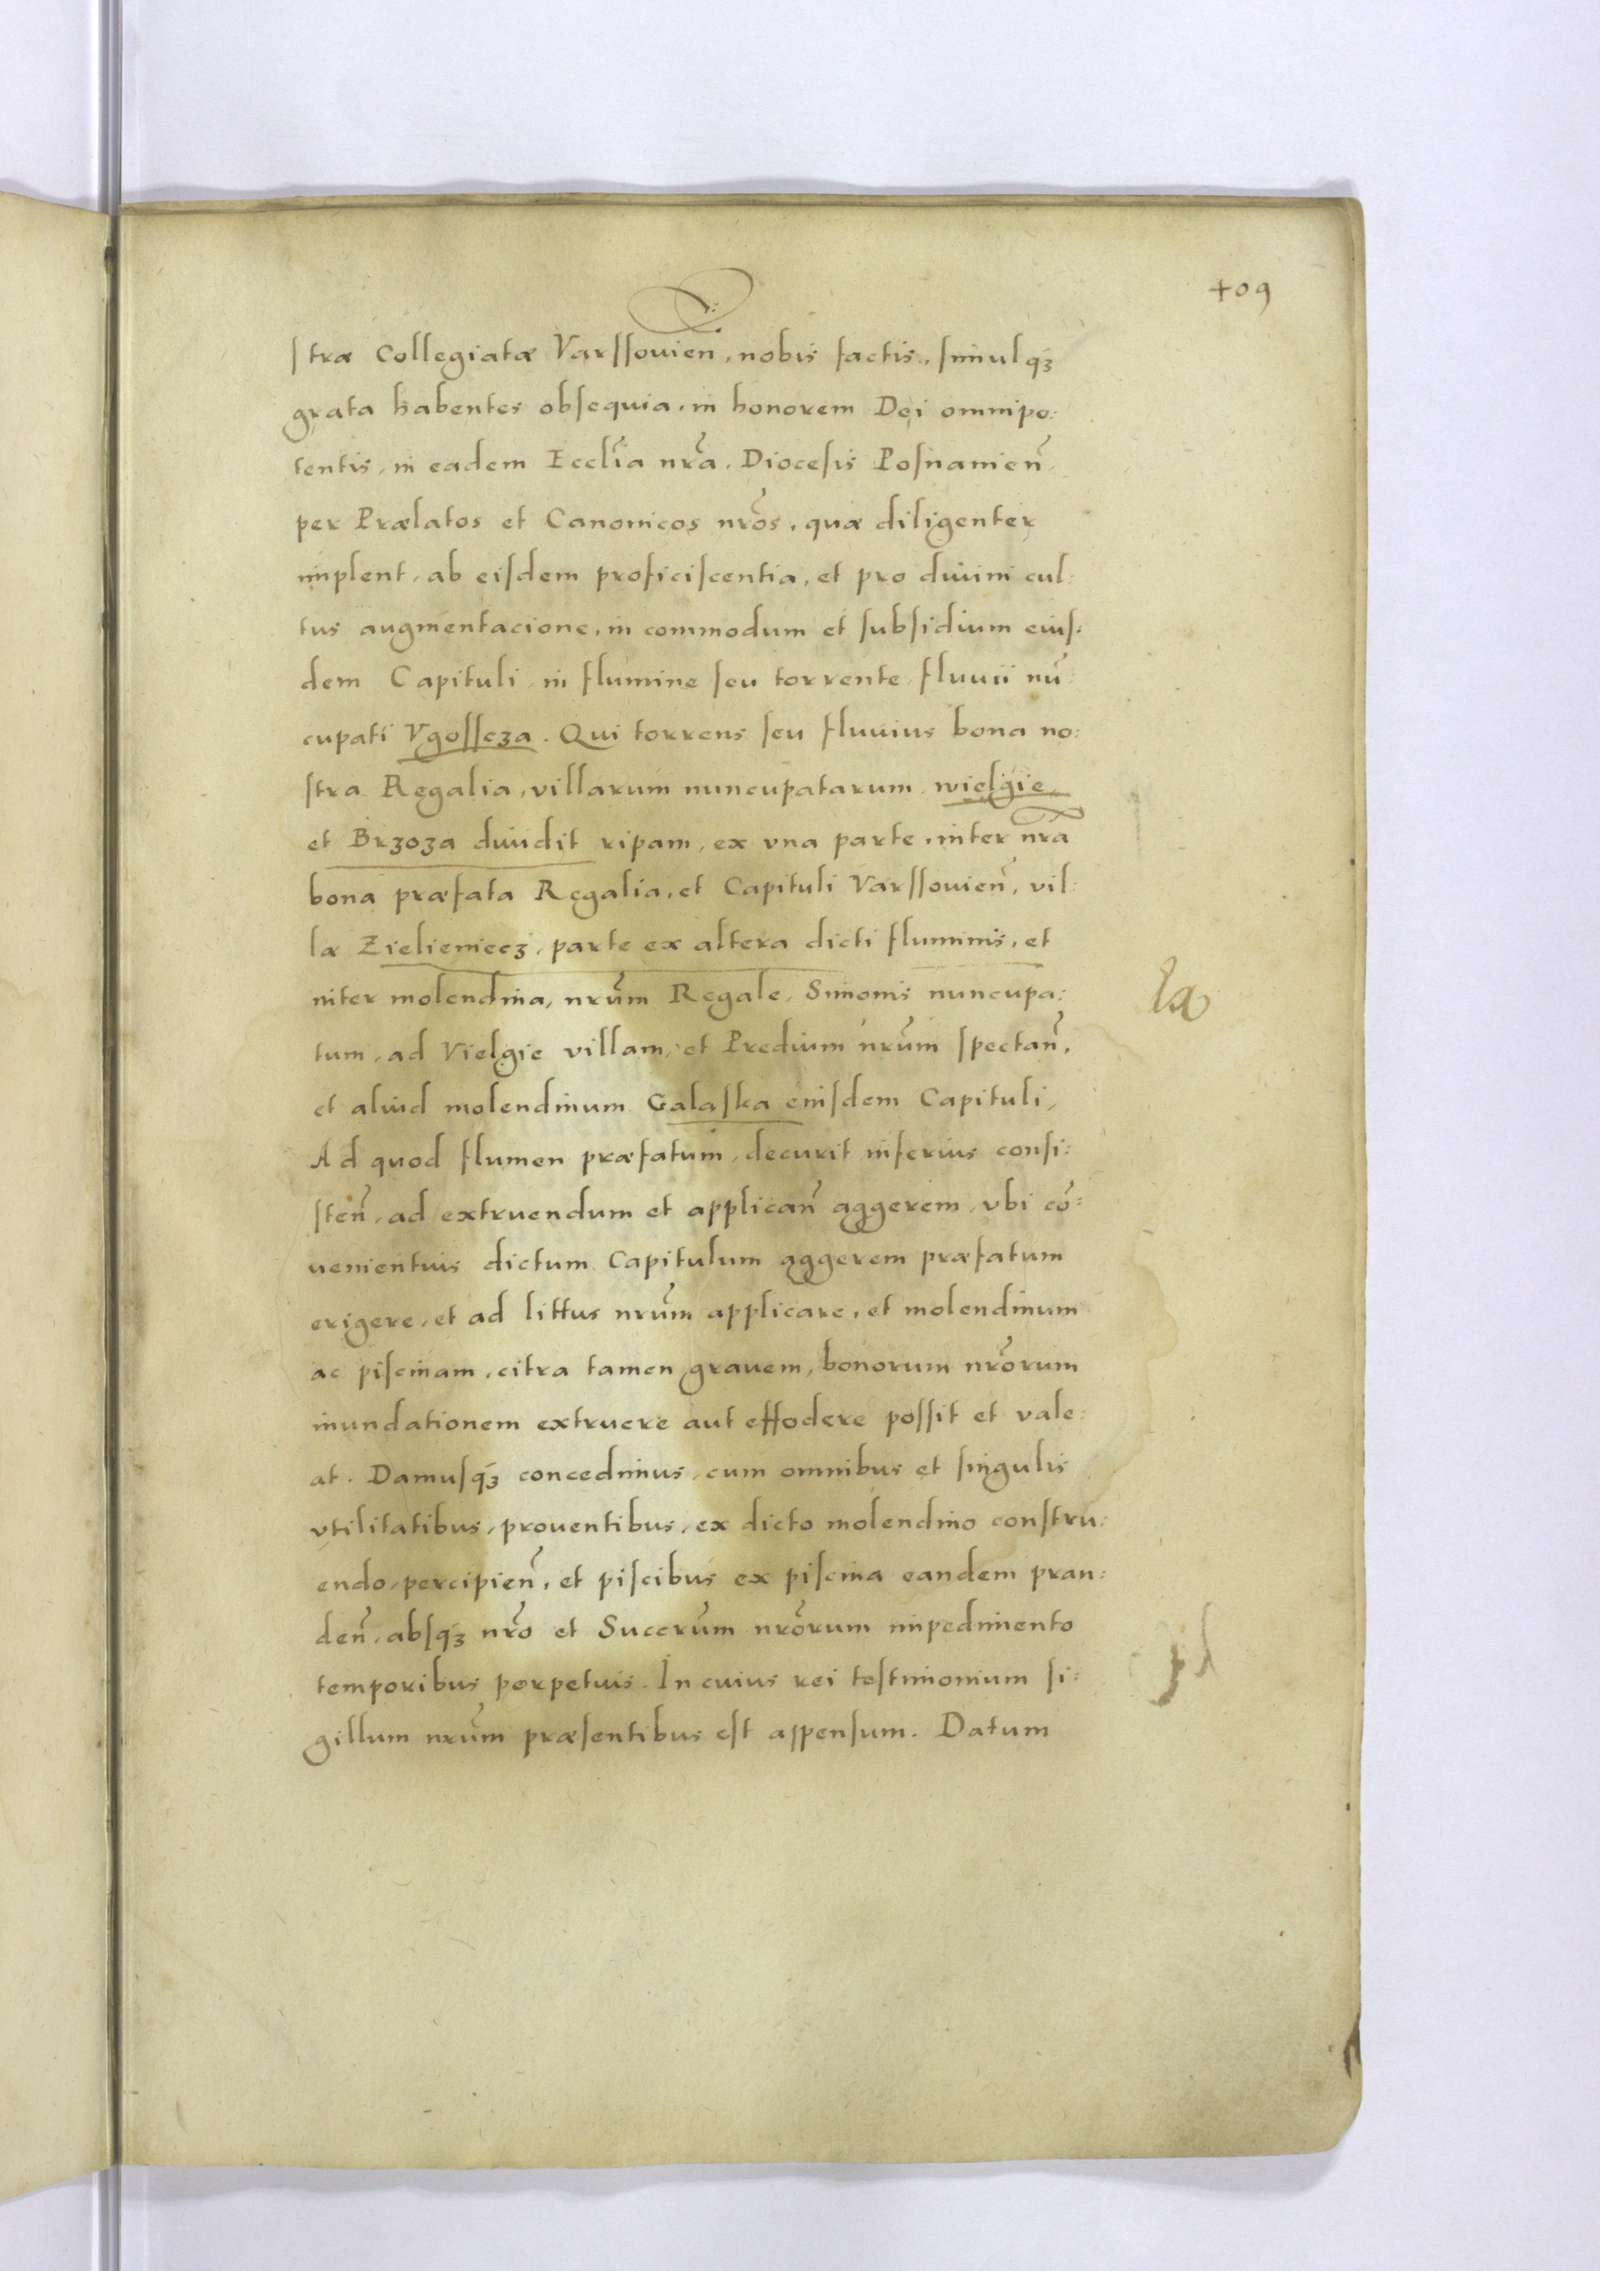 409
stræ Collegiatæ Varſſouien̄, nobis factis, simulqꝫ
grata habentes obsequia, in honorem Dei omnipo:
tentis, in eadem Eccl̄ia nr̄a, Diocesis Posnanien̄
per Prælatos et Canonicos nr̄os, quæ diligenter
implent, ab eisdem proficiscentia, et pro diuini cul:
tus augmentacione, in commodum et subsidium eius:
dem Capituli, in flumine seu torrente fluuii nū:
cupati Vgoſſcza. Qui torrens seu fluuius bona no:
stra Regalia, villarum nuncupatarum wielgie,
et Brzoza diuidit ripam, ex vna parte, inter nr̄a
bona præfata Regalia, et Capituli Varſſouien̄, vil:
læ Zielieniecz, parte ex altera dicti fluminis, et
inter molendina, nr̄um Regale, Simonis nuncupa:
tum, ad Vielgie villam, et Predium nr̄um spectan̄,
et aliud molendinum Galaska eiusdem Capituli,
Ad quod flumen præfatum, decurit inferius consi:
sten̄, ad extruendum et applican̄ aggerem, vbi cō:
uenientuis dictum Capitulum aggerem præfatum
erigere, et ad littus nr̄um applicare, et molendinum
ac piscinam, citra tamen grauem, bonorum nr̄orum
inundationem extruere aut effodere possit et vale:
at. Damusqꝫ concedimus, cum omnibus et singulis
vtilitatibus, prouentibus, ex dicto molendino constru:
endo, percipien̄, et piscibus ex piscina eandem pran:
den̄, absqꝫ nr̄o et Succr̄um nr̄orum impedimento
temporibus perpetuis. In cuius rei testimonium si:
gillum nr̄um præsentibus est appensum. Datum